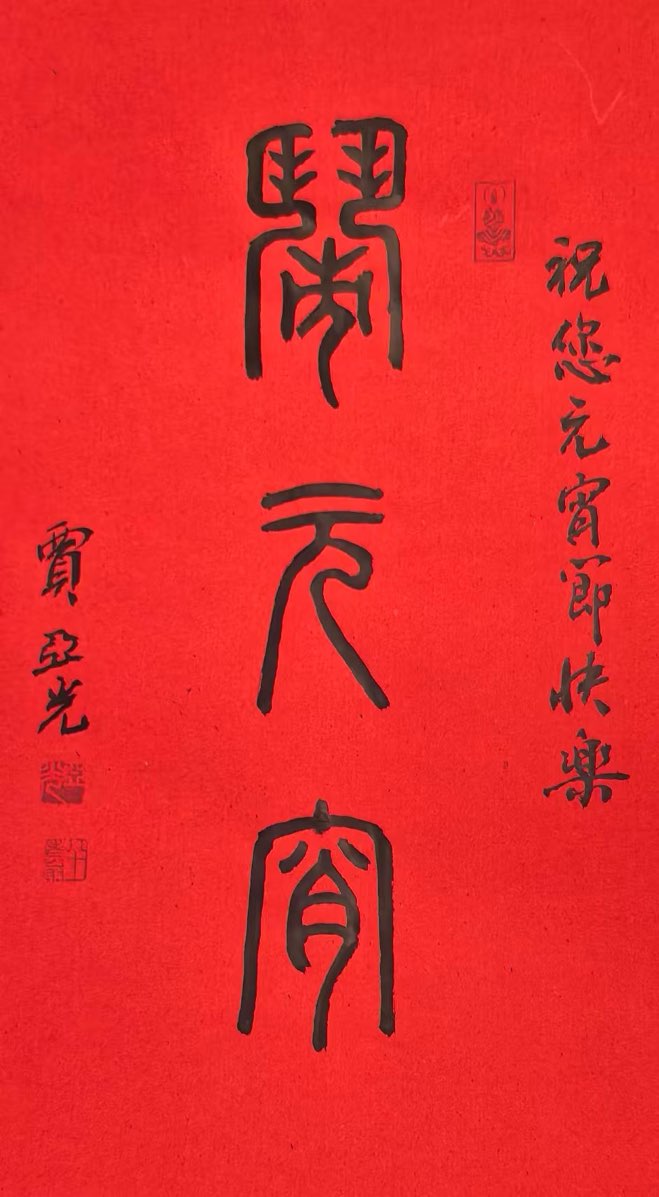 祝您元宵節快樂
鬧元宵
賈亞光